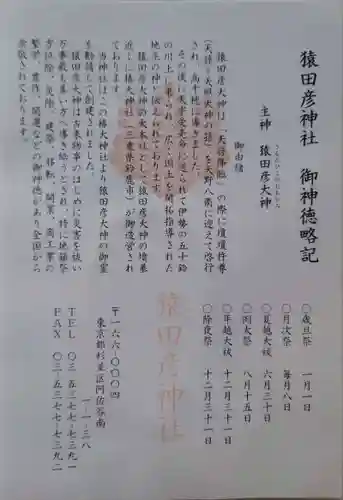 猿田彦神社　御神徳略記
主神　猿田彦大神
さるたひこのおおかみ
御由緒
猿田彦大神は「天孫降臨」の際に瓊瓊杵尊
（天孫＝天照大神の孫）を天野八衢に迎えて啓行
され、高千穂に導きました。
その後に天宇受売命に送られて伊勢の五十鈴
の川上に来られ、広く国土を開拓指導された
地主の神と伝えられております。
猿田彦大神の大本社として猿田彦大神の墳墓
近しに椿大神社（三重県鈴鹿市）が御造営され
ております。
当神社はこの椿大神社より猿田彦大神の御霊
を勧請して創建されました。
猿田彦大神は古来物事のはじめに災害を祓い
万事最も善い方へ導き給うとされ、特に地鎮祭
方位除、災除、建築、移転、開業、商工業の
繁栄、豊作、開運などの御神徳があり全国から
崇敬されております。
〇歳旦祭　一月一日
〇月次祭　毎月八日
〇夏越大祓　六月三十日
〇例大祭　八月十五日
〇年越大祓　十二月三十一日
〇除夜祭　十二月三十一日
猿田彦神社
〒一六六-〇〇〇四
東京都杉並区阿佐谷南
一-一-三八
ＴＥＬ　〇三-五三七七-七三九一
ＦＡＸ　〇三-五三七七-七三九二